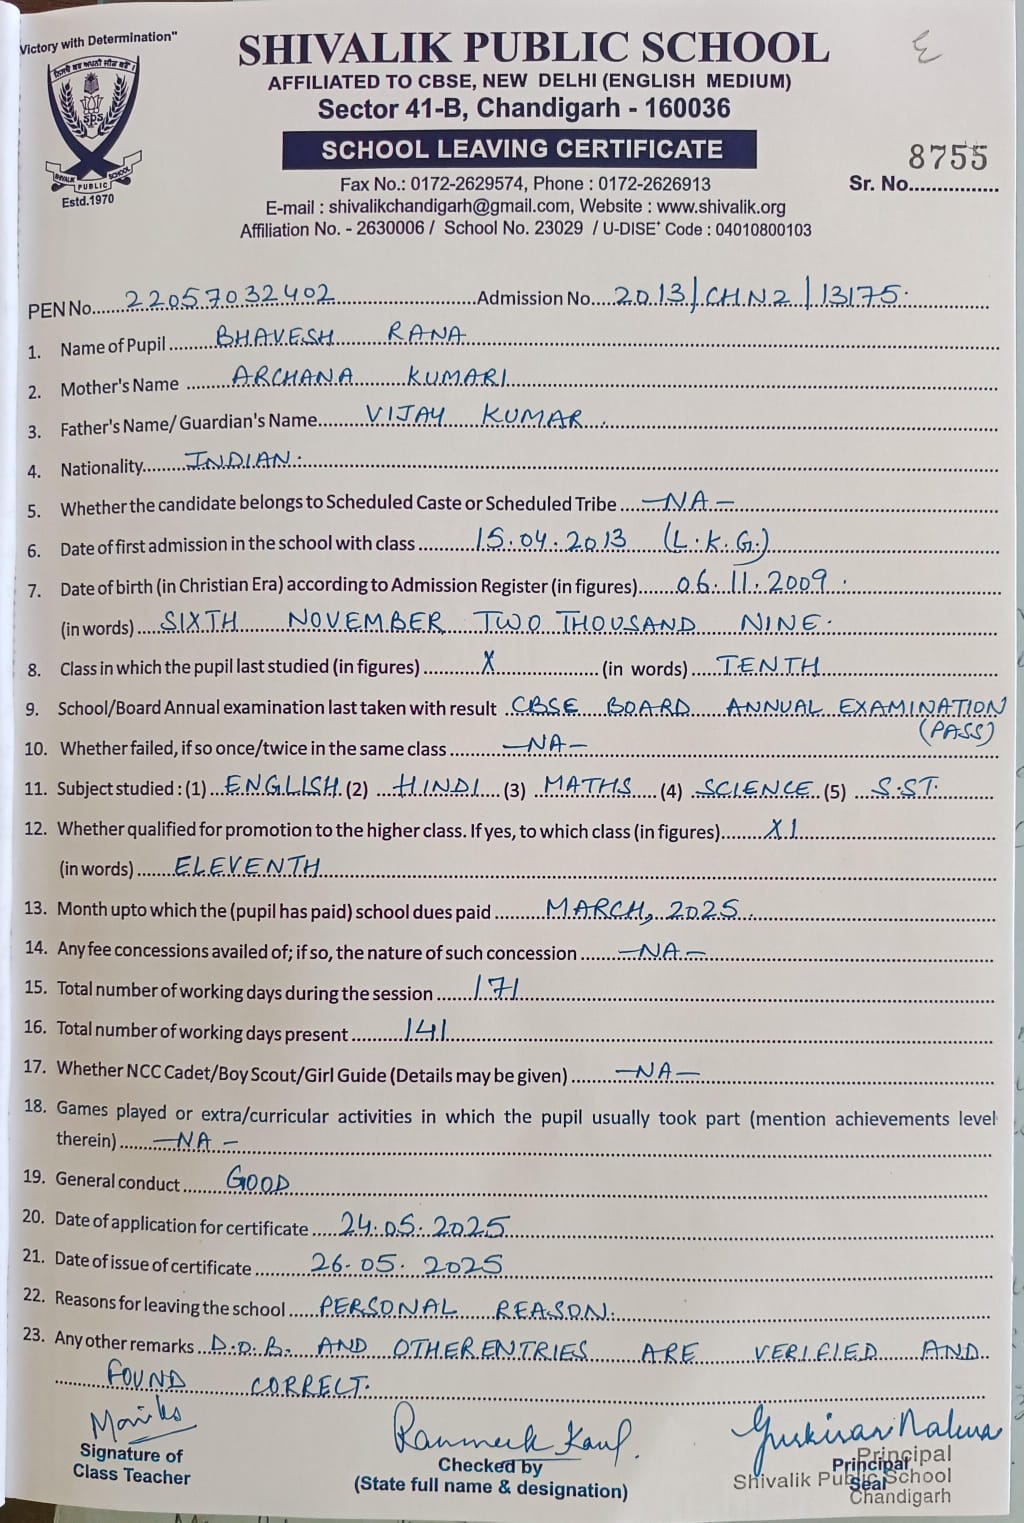 Victory with Determination"
ਨਿਸਚੈ ਕਰ ਅਪਨੀ ਜੀਤ ਕਰੋਂ।
SPS
SHIVALIK PUBLIC SCHOOL
Estd.1970
SHIVALIK PUBLIC SCHOOL
AFFILIATED TO CBSE, NEW DELHI (ENGLISH MEDIUM)
Sector 41-B, Chandigarh - 160036
SCHOOL LEAVING CERTIFICATE
8755
Sr. No.................
Fax No.: 0172-2629574, Phone : 0172-2626913
E-mail : shivalikchandigarh@gmail.com, Website : www.shivalik.org
Affiliation No. - 2630006 / School No. 23029 / U-DISE+ Code : 04010800103
PEN No. 22057032402 Admission No. 2013/CHN2/13175.
1. Name of Pupil BHAVESH RANA
2. Mother's Name ARCHANA KUMARI
3. Father's Name/ Guardian's Name VIJAY KUMAR
4. Nationality INDIAN.
5. Whether the candidate belongs to Scheduled Caste or Scheduled Tribe -NA-
6. Date of first admission in the school with class 15.04.2013 (L.K.G.)
7. Date of birth (in Christian Era) according to Admission Register (in figures) 06.11.2009.
(in words) SIXTH NOVEMBER TWO THOUSAND NINE.
8. Class in which the pupil last studied (in figures) X (in words) TENTH
9. School/Board Annual examination last taken with result CBSE BOARD ANNUAL EXAMINATION
(PASS)
10. Whether failed, if so once/twice in the same class -NA-
11. Subject studied : (1) ENGLISH (2) HINDI (3) MATHS (4) SCIENCE (5) S.ST.
12. Whether qualified for promotion to the higher class. If yes, to which class (in figures) XI
(in words) ELEVENTH
13. Month upto which the (pupil has paid) school dues paid MARCH, 2025.
14. Any fee concessions availed of; if so, the nature of such concession -NA-
15. Total number of working days during the session 171
16. Total number of working days present 141
17. Whether NCC Cadet/Boy Scout/Girl Guide (Details may be given) -NA-
18. Games played or extra/curricular activities in which the pupil usually took part (mention achievements level
therein) -NA-
19. General conduct GOOD
20. Date of application for certificate 24.05.2025
21. Date of issue of certificate 26.05.2025
22. Reasons for leaving the school PERSONAL REASON.
23. Any other remarks D.O.B. AND OTHER ENTRIES ARE VERIFIED AND
FOUND CORRECT.
Signature of
Class Teacher
Checked by
(State full name & designation)
Principal
Seal
Principal
Shivalik Public School
Chandigarh